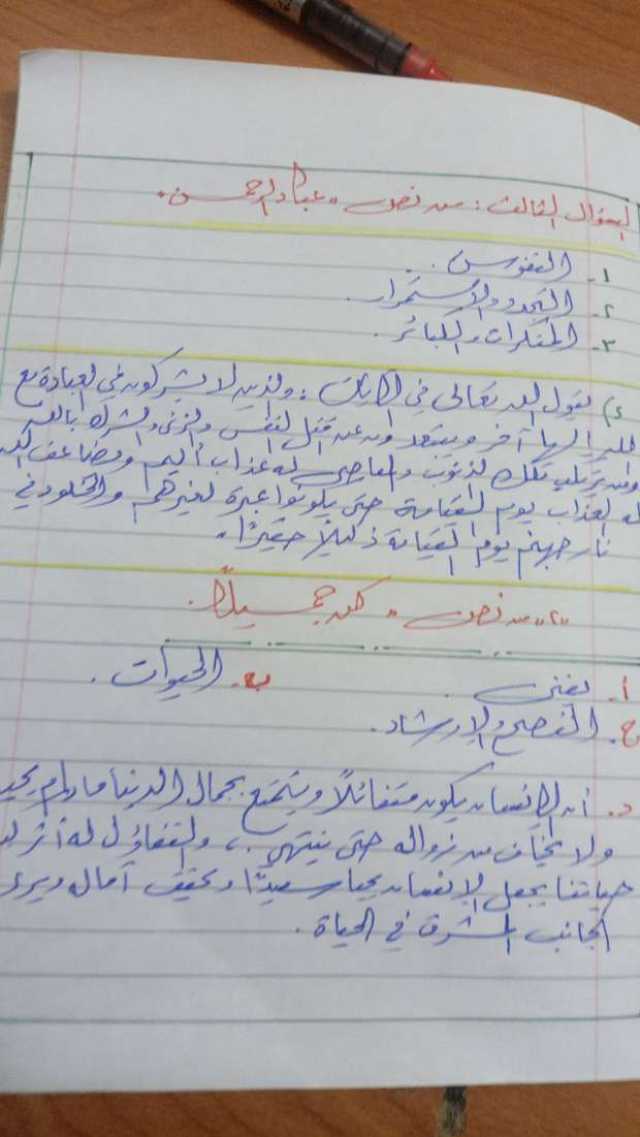 السؤال الثالث: من نص "عباد الرحمن"
١- النفوس.
٢- التجدد والاستمرار.
٣- المنكرات والكبائر.
٤) يقول الله تعالى في الآيات: والذين لا يشركون في العبادة مع
الله إلهاً آخر ويبتعدون عن قتل النفس والزنى والشرك بالله
ومن يرتكب تلك الذنوب والمعاصي له عذاب أليم ويضاعف الله
له العذاب يوم القيامة حتى يكونوا عبرة لغيرهم والخلود في
نار جهنم يوم القيامة ذليلاً حقيراً.
"٢" من نص "كن جميلاً"
أ- يفنى. ب- الحيوات.
ج- النصح والإرشاد.
د- أن الإنسان يكون متفائلاً ويتمتع بجمال الدنيا مادام
ولا يخاف من زواله حتى ينتهي، والتفاؤل له أثر
حياتنا يجعل الإنسان يحيا سعيداً ويحقق آماله ويرى
الجانب المشرق في الحياة.